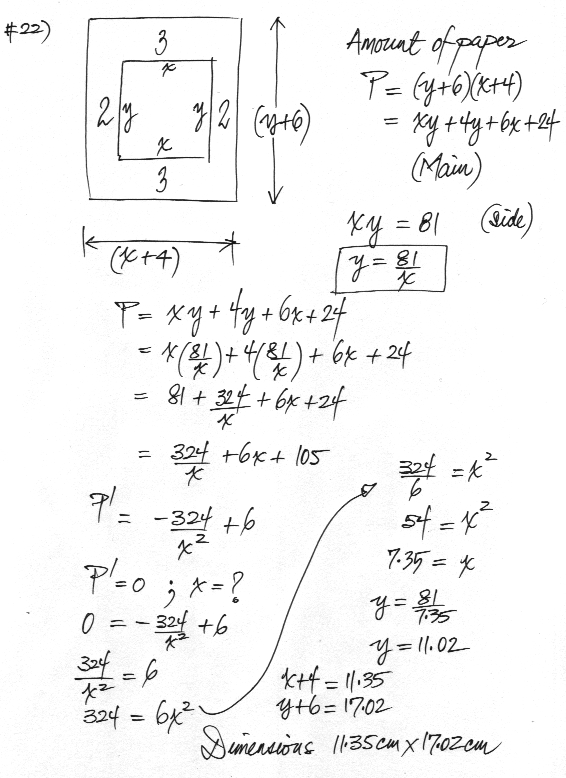 #22)
3
x
2 y y 2
x
3
(y+6)
(x+4)
Amount of paper
P = (y+6)(x+4)
= xy + 4y + 6x + 24
(Main)
xy = 81 (Side)
y = 81/x
P = xy + 4y + 6x + 24
= x(81/x) + 4(81/x) + 6x + 24
= 81 + 324/x + 6x + 24
= 324/x + 6x + 105
P' = -324/x² + 6
P' = 0 ; x = ?
0 = -324/x² + 6
324/x² = 6
324 = 6x²
324/6 = x²
54 = x²
7.35 = x
y = 81/7.35
y = 11.02
x+4 = 11.35
y+6 = 17.02
Dimensions 11.35cm x 17.02cm